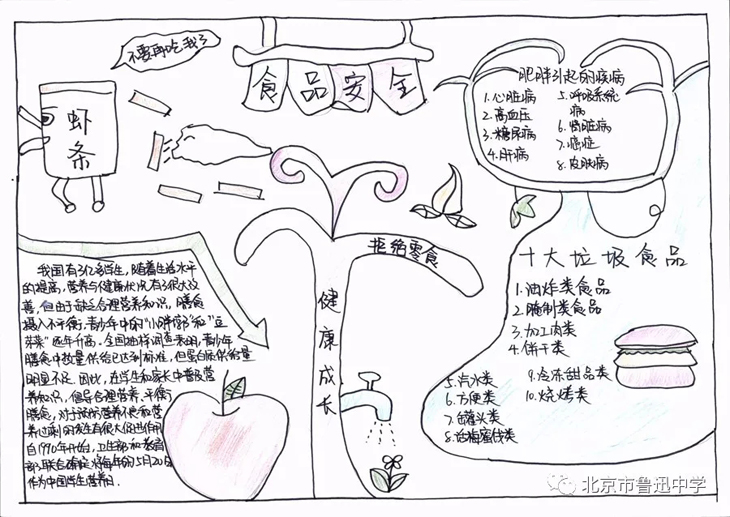 不要再吃我了
食品安全
虾条
肥胖引起的疾病
1.心脏病
2.高血压
3.糖尿病
4.肝病
5.呼吸系统
病
6.肾脏病
7.癌症
8.皮肤病
拒绝零食
健康成长
十大垃圾食品
1.油炸类食品
2.腌制类食品
3.加工肉类
4.饼干类
5.汽水类
6.方便类
7.罐头类
8.话梅蜜饯类
9.冷冻甜品类
10.烧烤类
我国有3亿多学生，随着生活水平
的提高，营养与健康状况有了很大改
善，但由于缺乏合理营养知识，膳食
摄入不平衡，青少年中的“小胖墩”和“豆
芽菜”逐年升高。全国抽样调查表明，青少年
膳食中热量供给已达到标准，但蛋白质供给量
明显不足。因此，在学生和家长中普及营
养知识，倡导合理营养，平衡
膳食，对于预防营养不良和营
养过剩的发生有很大促进作用
自1990年开始，卫生部和教育
部联合确定将每年的5月20日
作为中国学生营养日.
北京市鲁迅中学